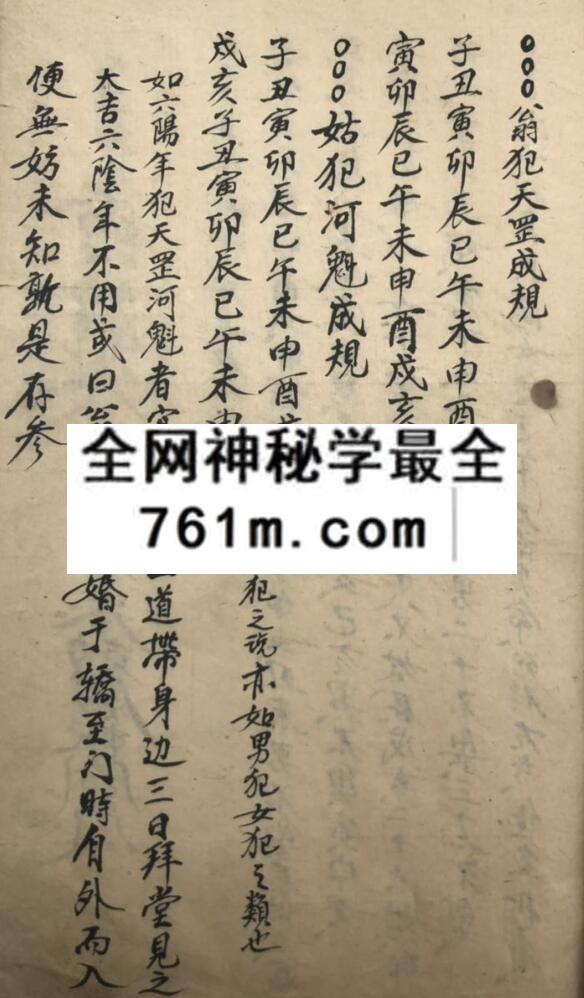 翁犯天罡成規
子丑寅卯辰巳午未申酉
寅卯辰巳午未申酉戌亥
姑犯河魁成規
子丑寅卯辰巳午未申酉
戌亥子丑寅卯辰巳午未申
犯之说亦如男犯女犯之類也
如六陽年犯天罡河魁者
道帶身边三日拜堂見之
大吉六陰年不用或曰翁
婚于轎至门時自外而入
便無妨未知孰是存参
全网神秘学最全
761m.com